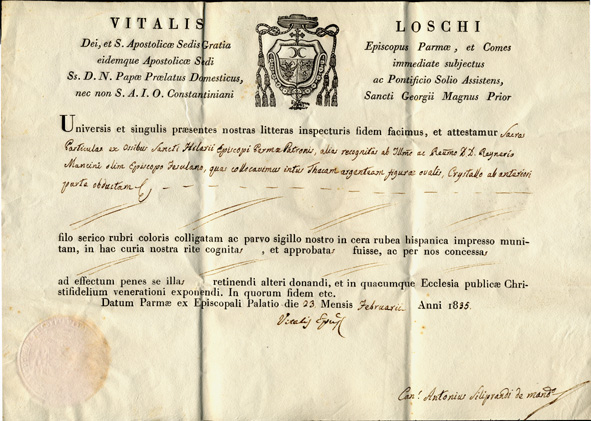 VITALIS LOSCHI
Dei, et S. Apostolicæ Sedis Gratia Episcopus Parmæ, et Comes
eidemque Apostolicæ Sedi immediate subjectus
Ss. D. N. Papæ Prælatus Domesticus, ac Pontificio Solio Assistens,
nec non S. A. I. O. Constantiniani Sancti Georgii Magnus Prior
Universis et singulis præsentes nostras litteras inspecturis fidem facimus, et attestamur Sacras
Particulas ex Ossibus Sancti Hilarii Episcopi Parmæ Patronis, alias recognitas ab Illmo ac Revmo D.D. Raynerio
Mancini olim Episcopo Fesulano, quas collocavimus intus Thecam argenteam figuræ ovalis, Crystallo ab anteriori
parte obductam
filo serico rubri coloris colligatam ac parvo sigillo nostro in cera rubea hispanica impresso muni-
tam, in hac curia nostra rite cognitas, et approbatas fuisse, ac per nos concessas
ad effectum penes se illas retinendi alteri donandi, et in quacumque Ecclesia publicæ Chri-
stifidelium venerationi exponendi. In quorum fidem etc.
Datum Parmæ ex Episcopali Palatio die 23 Mensis Februarii Anni 1835.
Vitalis Epus
Can.s Antonius Siliprandi de mand.o